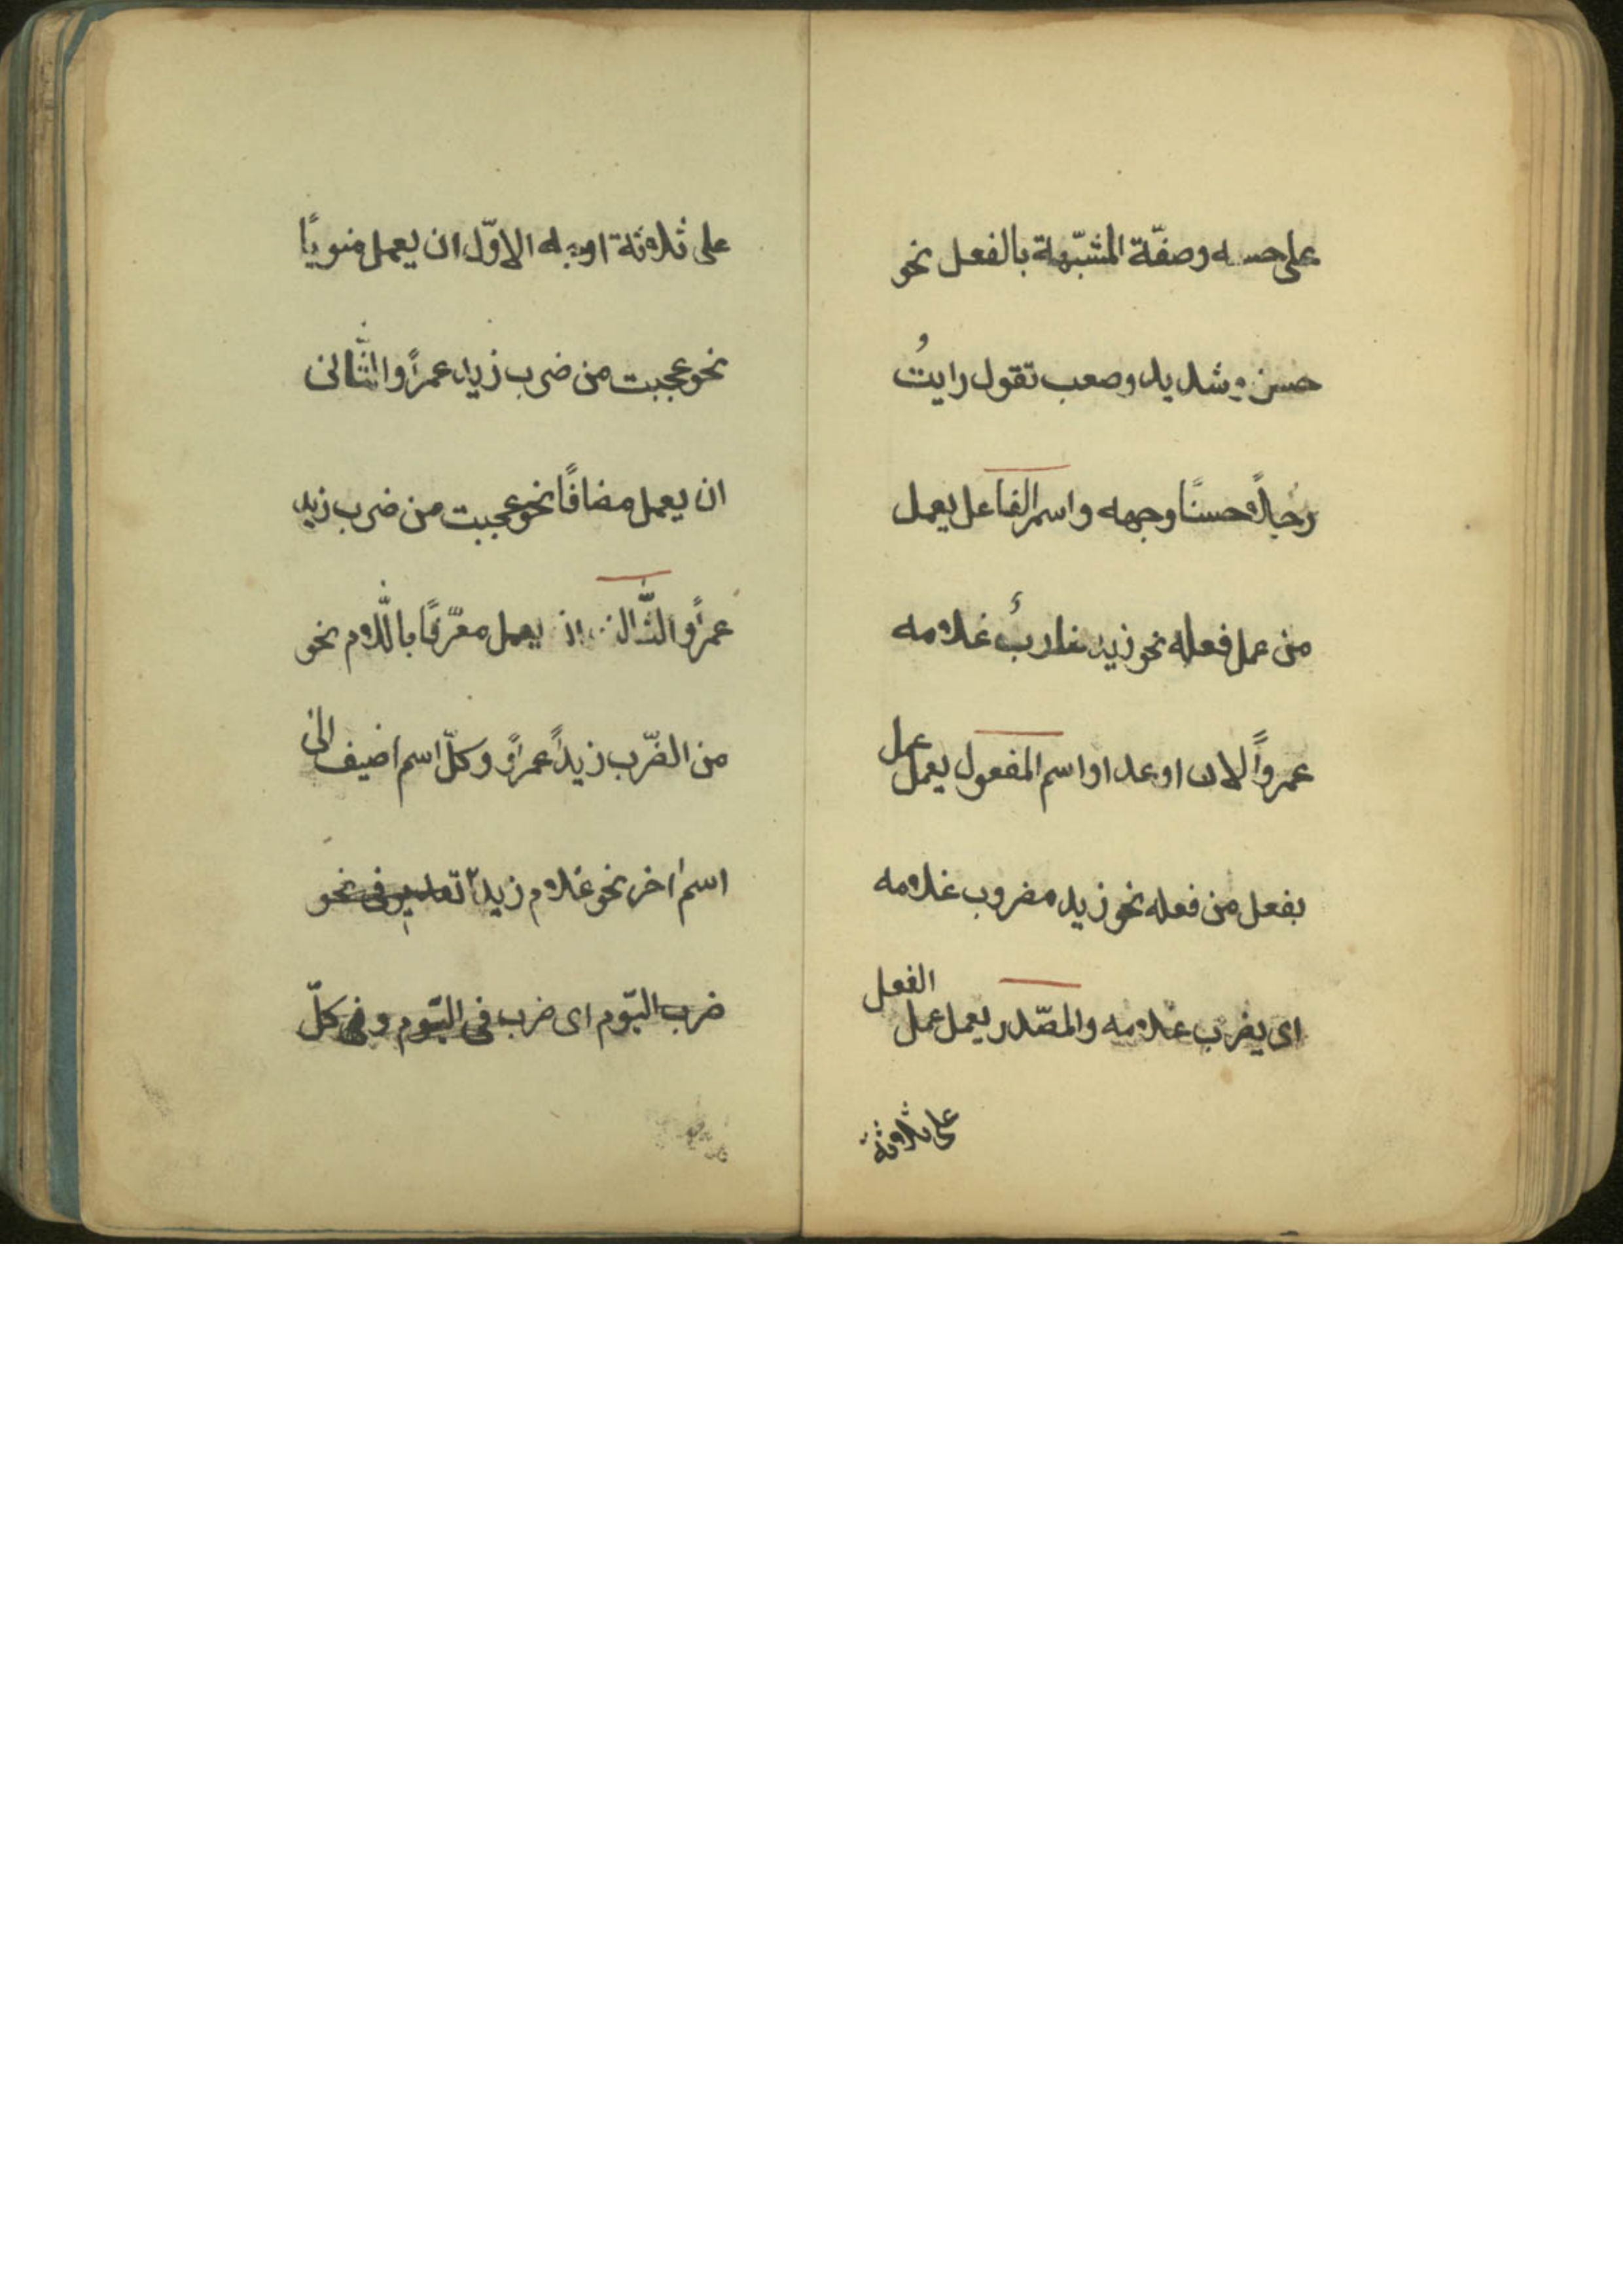 على حسه وصفّة المشبّهة بالفعل نحو
حسن وشديد وصعب تقول رايتُ
رجلاً حسنًا وجهه واسم الفاعل يعمل
من عمل فعله نحو زيد ضاربٌ غلامه
عمرواً الان او غدا واسم المفعول يعمل عمل
بفعل من فعله نحو زيد مضروب غلامه
اى يضرب غلامه والمصّدر يعمل عمل الفعل
على ثلاثة
على ثلاثة اوجه الاوّل ان يعمل منويًا
نحو عجبت من ضرب زيد عمراً والثّانى
ان يعمل مضافًا نحو عجبت من ضرب زيد
عمراً والثّالث ان يعمل معرّفًا باللّام نحو
من الضّرب زيداً عمراً وكلّ اسم اضيف الى
اسم اخر نحو غلام زيد فى نحو
ضرب اليّوم اى ضرب فى اليّوم وفى كلّ